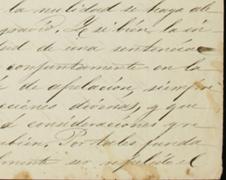 la nulidad se haya de
agravio. Y si bien la in
tud de una sentencia
conjuntamente en la
de apelación, siempre
ciones diversas, y que
consideraciones que
Por tales funda
mente se